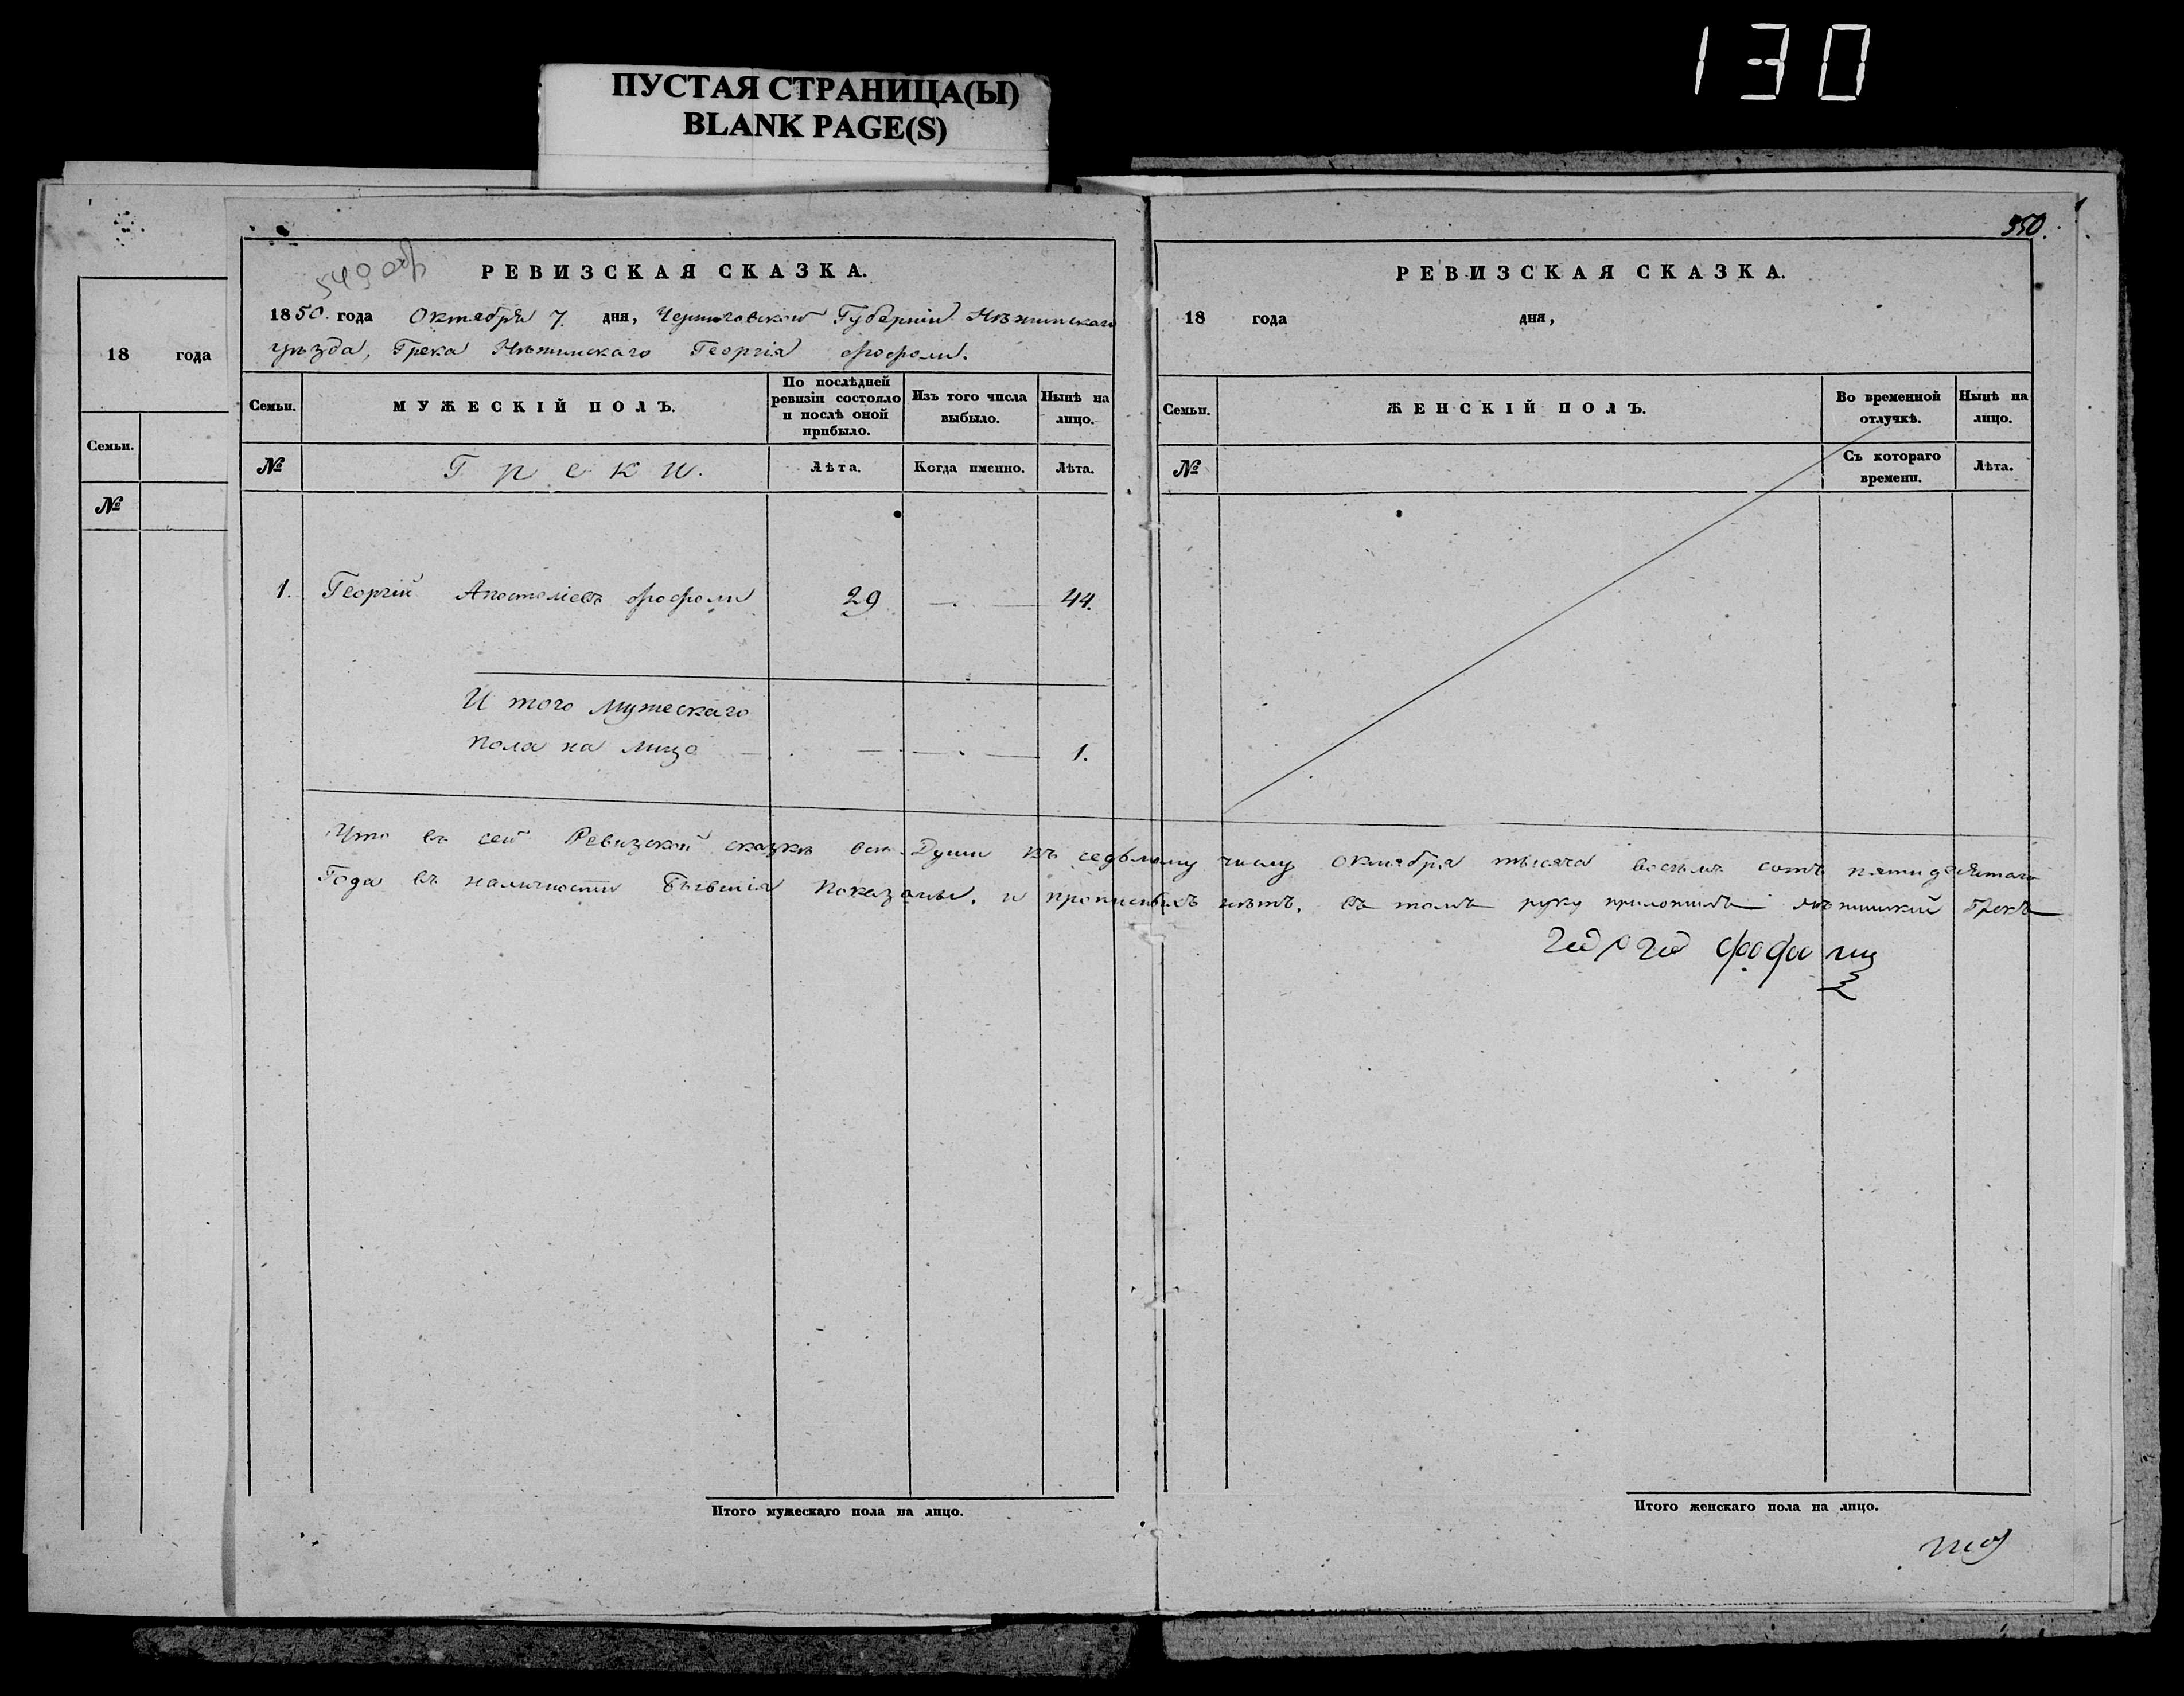 130
ПУСТАЯ СТРАНИЦА(Ы)
BLANK PAGE(S)
18 года
Семьи.
№
549 об
РЕВИЗСКАЯ СКАЗКА.
1850. года Октября 7. дня, Черниговской Губерніи Нѣжинскаго
уѣзда, Грека Нѣжинскаго Георгія Фофоли.
Семьи.
МУЖЕСКІЙ ПОЛЪ.
По послѣдней ревизіи состояло и послѣ оной прибыло.
Изъ того числа выбыло.
Нынѣ на лицо.
№
Греки.
Лѣта.
Когда именно.
Лѣта.
1. Георгій Апостоліевъ Фофоли 29 — 44.
И того мужескаго
пола на лицо — — — 1.
350.
РЕВИЗСКАЯ СКАЗКА.
18 года дня,
Семьи.
ЖЕНСКІЙ ПОЛЪ.
Во временной отлучкѣ.
Нынѣ на лицо.
№
Съ котораго времени.
Лѣта.
Что въ сей Ревизской сказкѣ всѣ Души къ седьмому числу Октября тысяча восемь сотъ пятидесятаго
Года въ наличности бывшія показаны, и прописныхъ нѣтъ, въ томъ руку приложилъ нѣжинскій Грекъ
Итого мужескаго пола на лицо.
Итого женскаго пола на лицо.